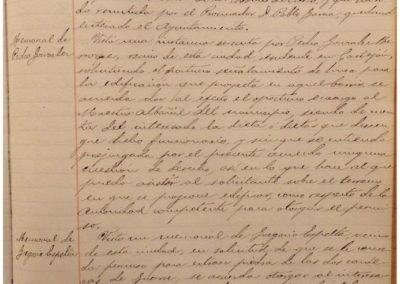 da remitida por el Procurador D. Pablo Jaina, quedando
enterado el Ayuntamiento.
Memorial de
Pedro Gonzalez
Vista una instancia suscrita por Pedro Gonzalez
vecino de esta ciudad, residente en Castejón,
solicitando el oportuno señalamiento de linea para
la edificación que proyecta en aquel barrio se
acuerda dar al efecto el oportuno encargo al
Maestro Albañil del municipio, siendo de cuen-
ta del interesado la dieta ó dietas que deven-
gue dicho funcionario, y sin que se entienda
prejuzgada por el presente acuerdo ninguna
cuestion de derecho, asi en lo que hace al que
pueda asistir al solicitante sobre el terreno
en que se propone edificar, como respecto de la
autoridad competente para otorgar el permi-
so.
Memorial de
Gregorio
Visto un memorial de Gregorio vecino
de esta ciudad, en solicitud de que se le conce-
da permiso para extraer piedra de las
se acuerda otorgar al interesa-